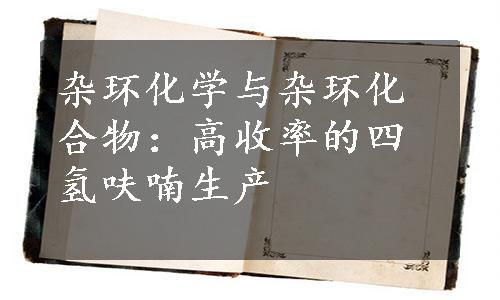 杂环化学与杂环化
合物：高收率的四
氢呋喃生产